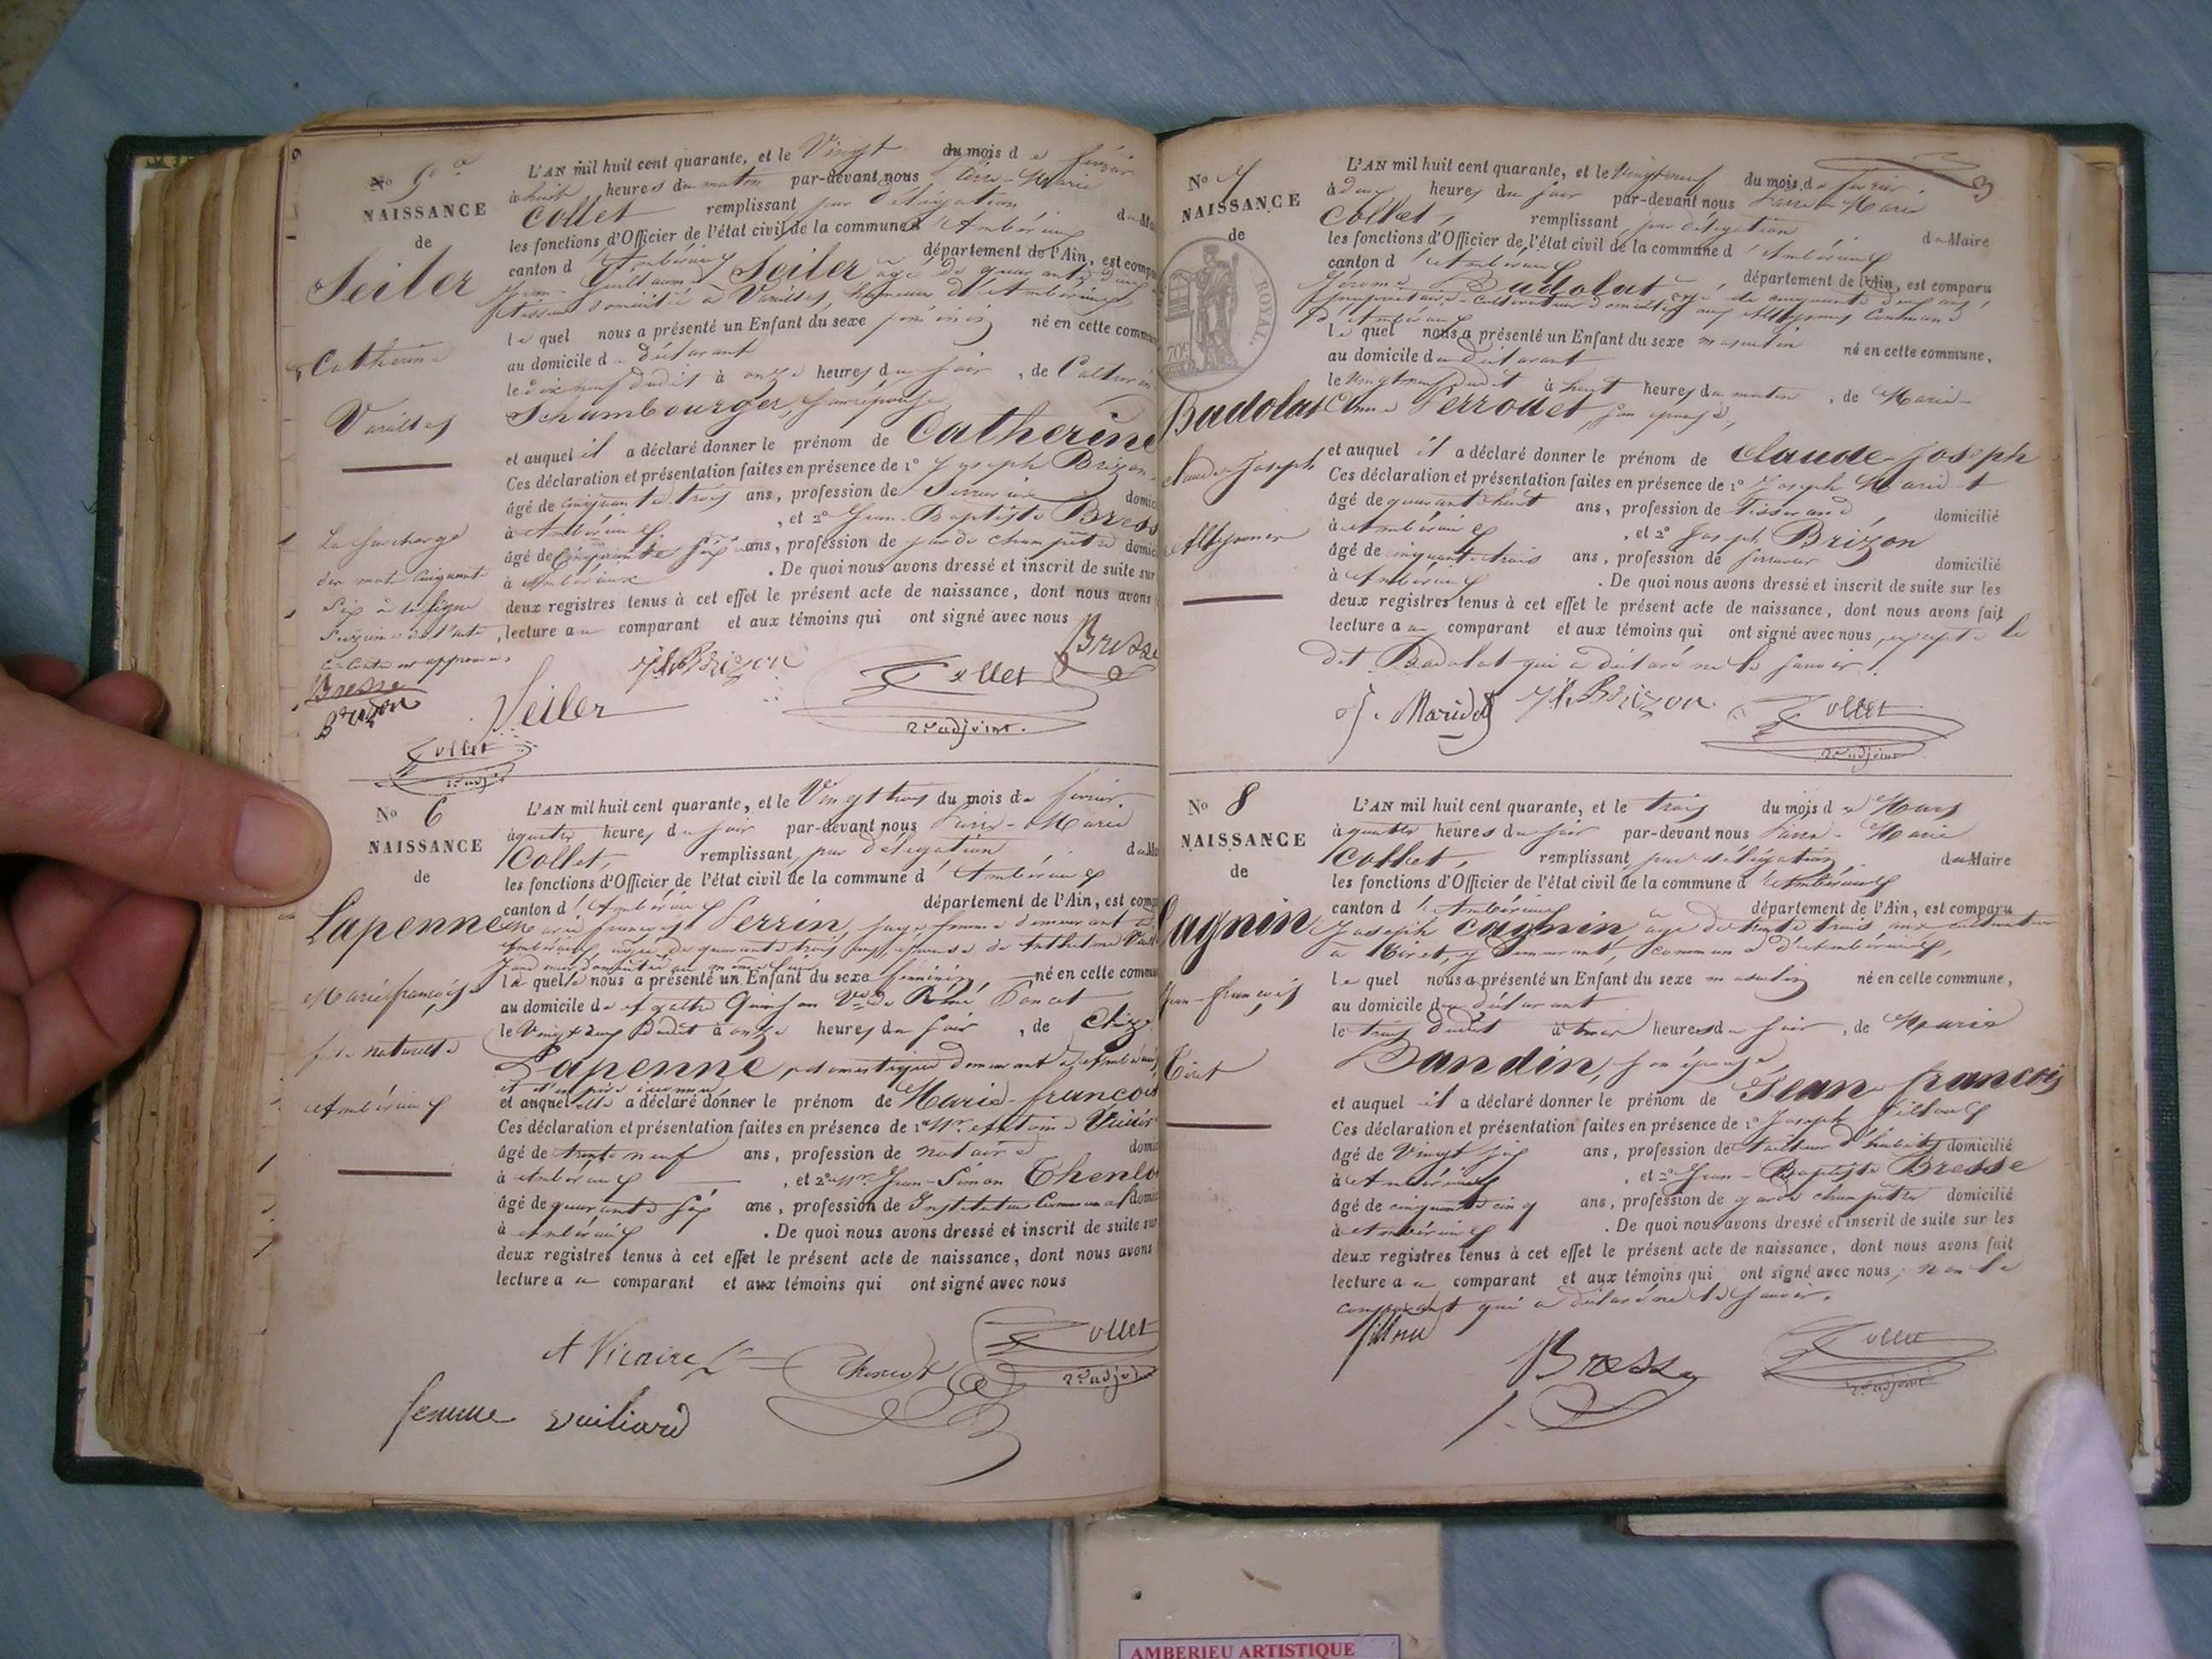 No 5
NAISSANCE
de
Seiler
Catherine
Vareilles
La surcharge
des mots cinquante
six à la ligne
de l'acte
ci-contre est approuvée.
Bresse
Brizon
Collet
2e adj.
L'AN mil huit cent quarante, et le Vingt du mois de février
à huit heures du matin par-devant nous Pierre-Marie
Collet remplissant par délégation du Maire
les fonctions d'Officier de l'état civil de la commune d'Ambérieux
canton d'Ambérieux département de l'Ain, est comparu
Jean-Guillaume Seiler âgé de quarante deux ans
domicilié à Vareilles, hameau d'Ambérieux
lequel nous a présenté un Enfant du sexe féminin né en cette commune
au domicile du déclarant
le dix neuf dudit à onze heures du soir, de Catherine
Schambourger, son épouse
et auquel il a déclaré donner le prénom de Catherine
Ces déclaration et présentation faites en présence de 1o Joseph Brizon
âgé de cinquante trois ans, profession de Serrurier domicilié
à Ambérieux, et 2o Jean-Baptiste Bresse
âgé de cinquante six ans, profession de garde champêtre domicilié
à Ambérieux. De quoi nous avons dressé et inscrit de suite sur
deux registres tenus à cet effet le présent acte de naissance, dont nous avons
lecture au comparant et aux témoins qui ont signé avec nous
Jh Brizon
Bresse
Seiler
Collet
2e adjoint.
No 6
NAISSANCE
de
Lapenne
Marie françoise
fille naturelle
Ambérieux
L'AN mil huit cent quarante, et le Vingt trois du mois de février.
à quatre heures du soir par-devant nous Pierre-Marie
Collet, remplissant par délégation du Maire
les fonctions d'Officier de l'état civil de la commune d'Ambérieux
canton d'Ambérieux département de l'Ain, est comparu
Marie françoise Perrin, sage femme demeurant à
Ambérieux, âgée de quarante trois ans, épouse de Anthelme
laquelle nous a présenté un Enfant du sexe féminin né en cette commune
au domicile de Agathe Vve de
le Vingt deux dudit à onze heures du soir, de
Lapenne, domestique demeurant à Ambérieux
et d'un père inconnu
et auquel elle a déclaré donner le prénom de Marie-françoise
Ces déclaration et présentation faites en présence de 1o Mr Antoine Vicaire
âgé de trente neuf ans, profession de notaire domicilié
à Ambérieux, et 2o Mr Jean-Simon
âgé de quarante six ans, profession de Instituteur Communal domicilié
à Ambérieux. De quoi nous avons dressé et inscrit de suite sur
deux registres tenus à cet effet le présent acte de naissance, dont nous avons
lecture au comparant et aux témoins qui ont signé avec nous
A Vicaire
Collet
2e adjoint
femme vuiliard
No 7
NAISSANCE
de
ROYAL.
Badolat
Claude Joseph
L'AN mil huit cent quarante, et le Vingt neuf du mois de février.
à deux heures du soir par-devant nous Pierre-Marie
Collet, remplissant par délégation du Maire
les fonctions d'Officier de l'état civil de la commune d'Ambérieux
canton d'Ambérieux département de l'Ain, est comparu
Jérome Badolat âgé de cinquante deux ans,
propriétaire-cultivateur domicilié aux Allymes commune
d'Ambérieux
lequel nous a présenté un Enfant du sexe masculin né en cette commune,
au domicile du déclarant
le vingt neuf dudit à huit heures du matin, de Marie-
Anne Perrodet, son épouse,
et auquel il a déclaré donner le prénom de Claude-Joseph
Ces déclaration et présentation faites en présence de 1o Joseph Maridet
âgé de quarante huit ans, profession de Tisserand, domicilié
à Ambérieux, et 2o Joseph Brizon
âgé de cinquante trois ans, profession de serrurier domicilié
à Ambérieux. De quoi nous avons dressé et inscrit de suite sur les
deux registres tenus à cet effet le présent acte de naissance, dont nous avons fait
lecture au comparant et aux témoins qui ont signé avec nous, excepté le
dit Badolat qui a déclaré ne le savoir.
J. Maridet
Jh Brizon
Collet
2e adjoint
No 8
NAISSANCE
de
Cagnin
Jean-françois
Tiret
L'AN mil huit cent quarante, et le trois du mois de Mars
à quatre heures du soir par-devant nous Pierre-Marie
Collet, remplissant par délégation du Maire
les fonctions d'Officier de l'état civil de la commune d'Ambérieux
canton d'Ambérieux département de l'Ain, est comparu
Joseph Cagnin âgé de trente trois ans cultivateur
à Tiret, y demeurant, commune d'Ambérieux,
lequel nous a présenté un Enfant du sexe masculin né en cette commune,
au domicile du déclarant
le trois dudit à heures du soir, de Marie
Bandin, son épouse,
et auquel il a déclaré donner le prénom de Jean-françois
Ces déclaration et présentation faites en présence de 1o Joseph
âgé de Vingt six ans, profession de tailleur d'habits domicilié
à Ambérieux, et 2o Jean-Baptiste Bresse
âgé de cinquante cinq ans, profession de garde champêtre domicilié
à Ambérieux. De quoi nous avons dressé et inscrit de suite sur les
deux registres tenus à cet effet le présent acte de naissance, dont nous avons fait
lecture au comparant et aux témoins qui ont signé avec nous, non le
comparant qui a déclaré ne le savoir.
Bresse
Collet
2e adjoint
AMBERIEU ARTISTIQUE